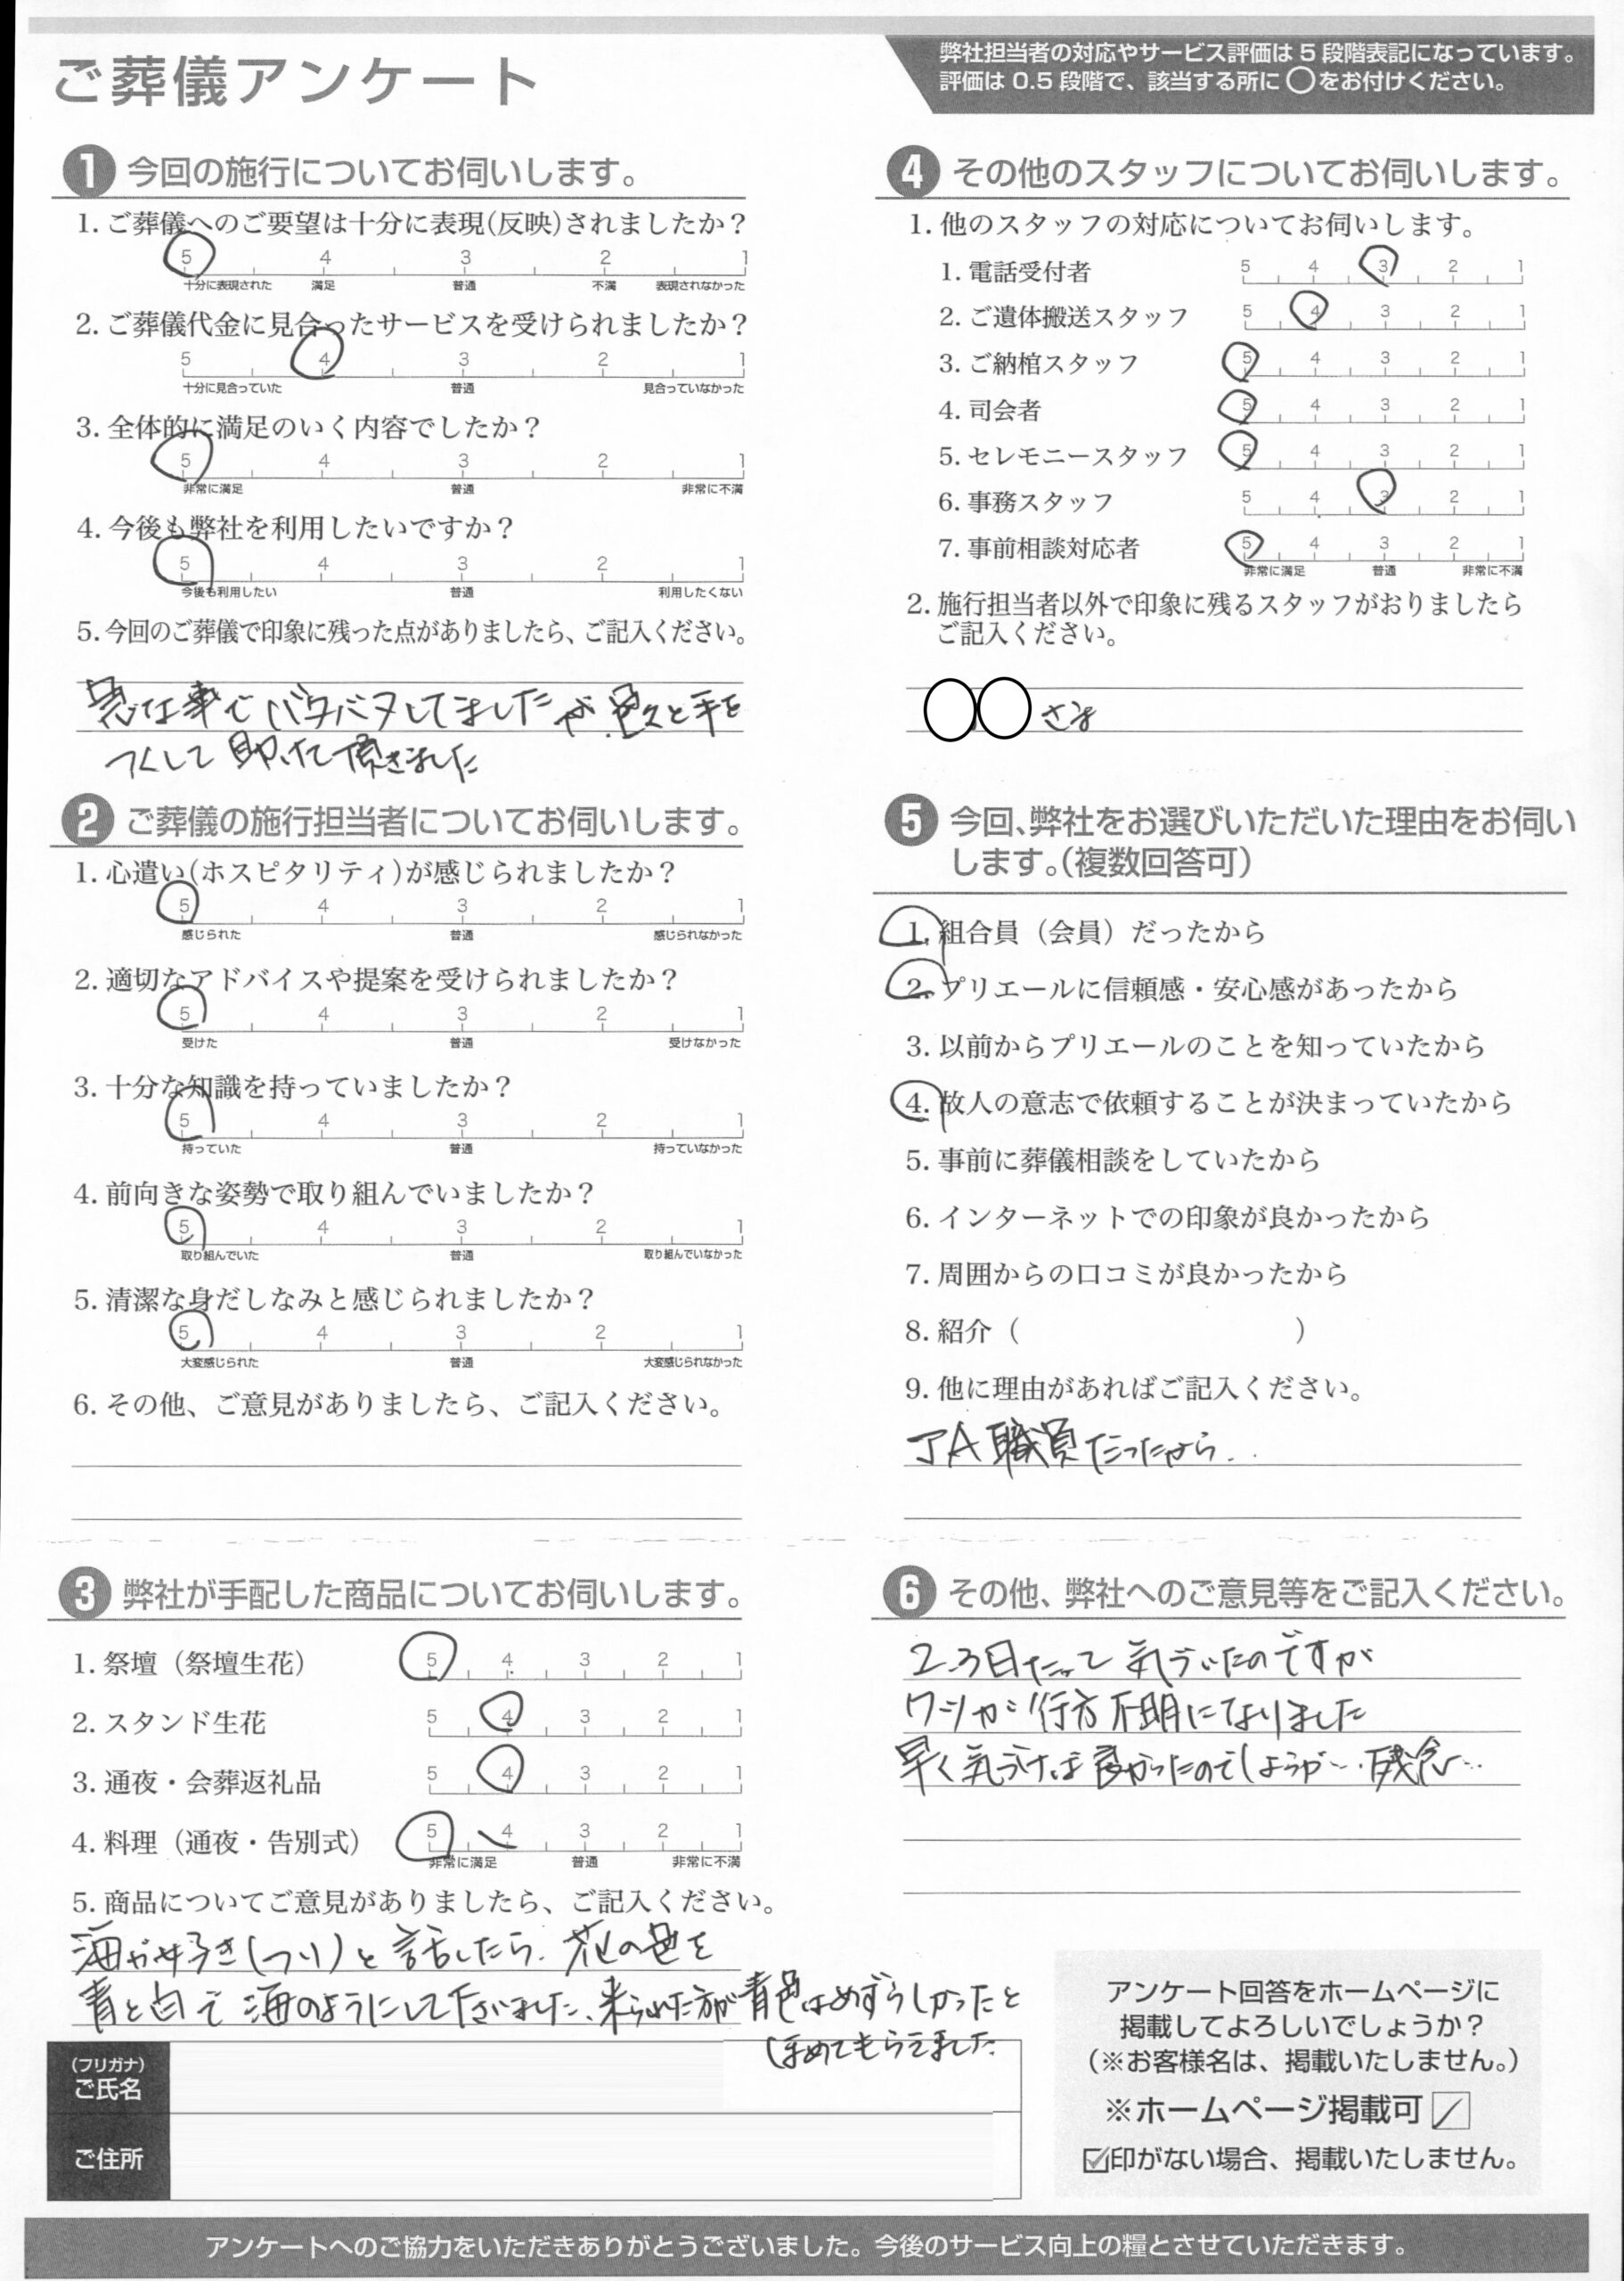 ご葬儀アンケート
弊社担当者の対応やサービス評価は5段階表記になっています。
評価は0.5段階で、該当する所に〇をお付けください。
1 今回の施行についてお伺いします。
1. ご葬儀へのご要望は十分に表現(反映)されましたか？
5 4 3 2 1
十分に表現された 満足 普通 不満 表現されなかった
2. ご葬儀代金に見合ったサービスを受けられましたか？
5 4 3 2 1
十分に見合っていた 普通 見合っていなかった
3. 全体的に満足のいく内容でしたか？
5 4 3 2 1
非常に満足 普通 非常に不満
4. 今後も弊社を利用したいですか？
5 4 3 2 1
今後も利用したい 普通 利用したくない
5. 今回のご葬儀で印象に残った点がありましたら、ご記入ください。
急な事でバタバタしてましたが色々と手を
つくして助けて頂きました
2 ご葬儀の施行担当者についてお伺いします。
1. 心遣い(ホスピタリティ)が感じられましたか？
5 4 3 2 1
感じられた 普通 感じられなかった
2. 適切なアドバイスや提案を受けられましたか？
5 4 3 2 1
受けた 普通 受けなかった
3. 十分な知識を持っていましたか？
5 4 3 2 1
持っていた 普通 持っていなかった
4. 前向きな姿勢で取り組んでいましたか？
5 4 3 2 1
取り組んでいた 普通 取り組んでいなかった
5. 清潔な身だしなみと感じられましたか？
5 4 3 2 1
大変感じられた 普通 大変感じられなかった
6. その他、ご意見がありましたら、ご記入ください。
3 弊社が手配した商品についてお伺いします。
1. 祭壇（祭壇生花） 5 4 3 2 1
2. スタンド生花 5 4 3 2 1
3. 通夜・会葬返礼品 5 4 3 2 1
4. 料理（通夜・告別式） 5 4 3 2 1
非常に満足 普通 非常に不満
5. 商品についてご意見がありましたら、ご記入ください。
海が好き(つり)と話したら、花の色を
青と白で海のようにして下さいました、来られた方が青色はめずらしかったと
ほめてもらえました
(フリガナ)
ご氏名
ご住所
4 その他のスタッフについてお伺いします。
1. 他のスタッフの対応についてお伺いします。
1. 電話受付者 5 4 3 2 1
2. ご遺体搬送スタッフ 5 4 3 2 1
3. ご納棺スタッフ 5 4 3 2 1
4. 司会者 5 4 3 2 1
5. セレモニースタッフ 5 4 3 2 1
6. 事務スタッフ 5 4 3 2 1
7. 事前相談対応者 5 4 3 2 1
非常に満足 普通 非常に不満
2. 施行担当者以外で印象に残るスタッフがおりましたら
ご記入ください。
〇〇さま
5 今回、弊社をお選びいただいた理由をお伺い
します。(複数回答可)
1. 組合員（会員）だったから
2. プリエールに信頼感・安心感があったから
3. 以前からプリエールのことを知っていたから
4. 故人の意志で依頼することが決まっていたから
5. 事前に葬儀相談をしていたから
6. インターネットでの印象が良かったから
7. 周囲からの口コミが良かったから
8. 紹介（ ）
9. 他に理由があればご記入ください。
JA職員だったから..
6 その他、弊社へのご意見等をご記入ください。
2.3日たって気づいたのですが
ワシが行方不明になりました
早く気づけば良かったのでしょうが…残念…
アンケート回答をホームページに
掲載してよろしいでしょうか？
(※お客様名は、掲載いたしません。)
※ホームページ掲載可
☑印がない場合、掲載いたしません。
アンケートへのご協力をいただきありがとうございました。今後のサービス向上の糧とさせていただきます。